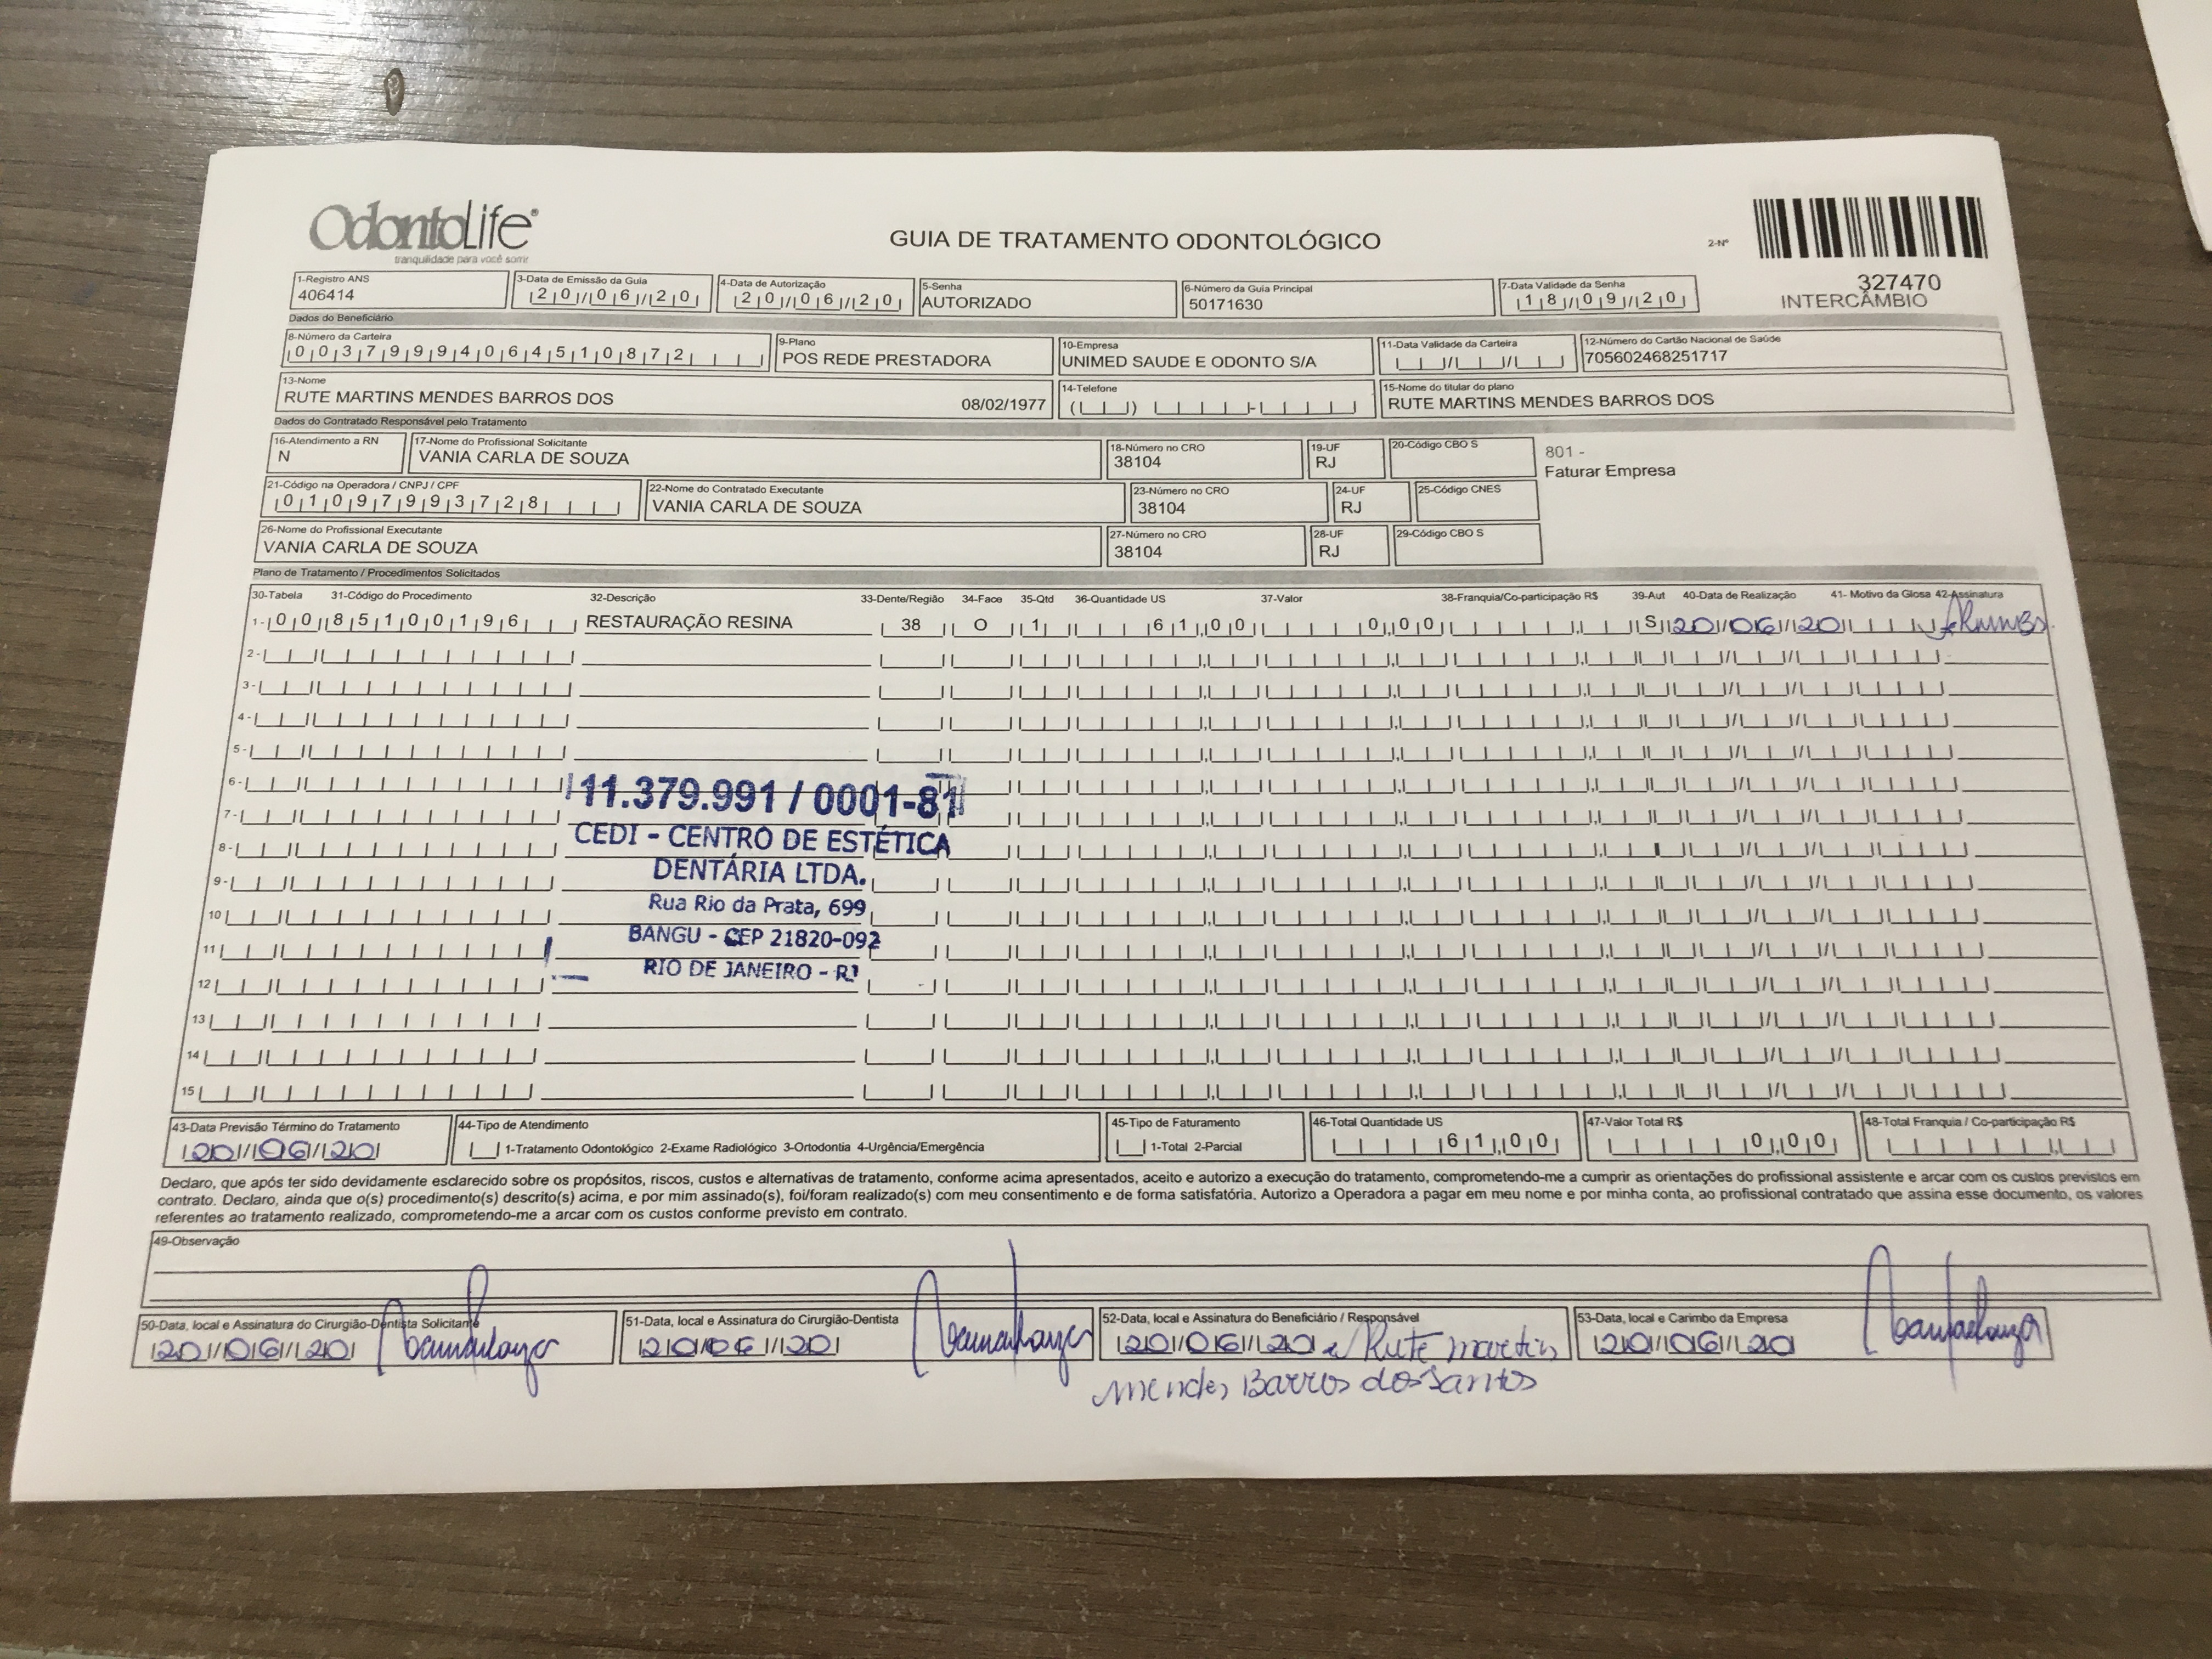 OdontoLife®
tranquilidade para você sorrir
GUIA DE TRATAMENTO ODONTOLÓGICO
2-Nº
327470
INTERCÂMBIO
1-Registro ANS
406414
3-Data de Emissão da Guia
20/06/20
4-Data de Autorização
20/06/20
5-Senha
AUTORIZADO
6-Número da Guia Principal
50171630
7-Data Validade da Senha
18/09/20
Dados do Beneficiário
8-Número da Carteira
00379994064510872
9-Plano
POS REDE PRESTADORA
10-Empresa
UNIMED SAUDE E ODONTO S/A
11-Data Validade da Carteira
12-Número do Cartão Nacional de Saúde
705602468251717
13-Nome
RUTE MARTINS MENDES BARROS DOS 08/02/1977
14-Telefone
15-Nome do titular do plano
RUTE MARTINS MENDES BARROS DOS
Dados do Contratado Responsável pelo Tratamento
16-Atendimento a RN
N
17-Nome do Profissional Solicitante
VANIA CARLA DE SOUZA
18-Número no CRO
38104
19-UF
RJ
20-Código CBO S
801 -
Faturar Empresa
21-Código na Operadora / CNPJ / CPF
01097993728
22-Nome do Contratado Executante
VANIA CARLA DE SOUZA
23-Número no CRO
38104
24-UF
RJ
25-Código CNES
26-Nome do Profissional Executante
VANIA CARLA DE SOUZA
27-Número no CRO
38104
28-UF
RJ
29-Código CBO S
Plano de Tratamento / Procedimentos Solicitados
30-Tabela 31-Código do Procedimento 32-Descrição 33-Dente/Região 34-Face 35-Qtd 36-Quantidade US 37-Valor 38-Franquia/Co-participação R$ 39-Aut 40-Data de Realização 41- Motivo da Glosa 42-Assinatura
1- 00 85100196 RESTAURAÇÃO RESINA 38 O 1 61,00 0,00 S 20/06/20
2-
3-
4-
5-
6-
7-
8-
9-
10
11
12
13
14
15
11.379.991 / 0001-81
CEDI - CENTRO DE ESTÉTICA
DENTÁRIA LTDA.
Rua Rio da Prata, 699
BANGU - CEP 21820-092
RIO DE JANEIRO - RJ
43-Data Previsão Término do Tratamento
20/06/20
44-Tipo de Atendimento
1-Tratamento Odontológico 2-Exame Radiológico 3-Ortodontia 4-Urgência/Emergência
45-Tipo de Faturamento
1-Total 2-Parcial
46-Total Quantidade US
61,00
47-Valor Total R$
0,00
48-Total Franquia / Co-participação R$
Declaro, que após ter sido devidamente esclarecido sobre os propósitos, riscos, custos e alternativas de tratamento, conforme acima apresentados, aceito e autorizo a execução do tratamento, comprometendo-me a cumprir as orientações do profissional assistente e arcar com os custos previstos em
contrato. Declaro, ainda que o(s) procedimento(s) descrito(s) acima, e por mim assinado(s), foi/foram realizado(s) com meu consentimento e de forma satisfatória. Autorizo a Operadora a pagar em meu nome e por minha conta, ao profissional contratado que assina esse documento, os valores
referentes ao tratamento realizado, comprometendo-me a arcar com os custos conforme previsto em contrato.
49-Observação
50-Data, local e Assinatura do Cirurgião-Dentista Solicitante
20/06/20
51-Data, local e Assinatura do Cirurgião-Dentista
20/06/20
52-Data, local e Assinatura do Beneficiário / Responsável
20/06/20 Rute Martins
Mendes Barros dos Santos
53-Data, local e Carimbo da Empresa
20/06/20